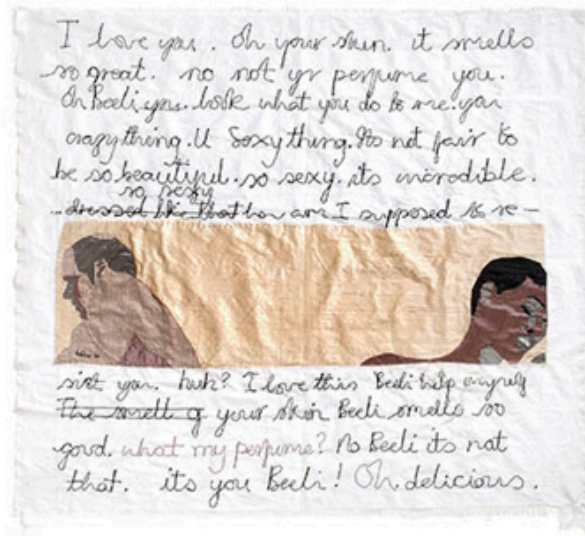 I love you. Oh your skin. it smells
so great. no not yr perfume you.
Oh Beeli you. look what you do to me. you
crazy thing. U Soxy thing. Its not fair to
be so beautiful. so sexy. its incredible.
so sexy
dressed like that how am I supposed to re-
sist you. huh? I love this Beeli help
The smell of your skin Beeli smells so
good. what my perfume? No Beeli its not
that. its you Beeli! Oh delicious.